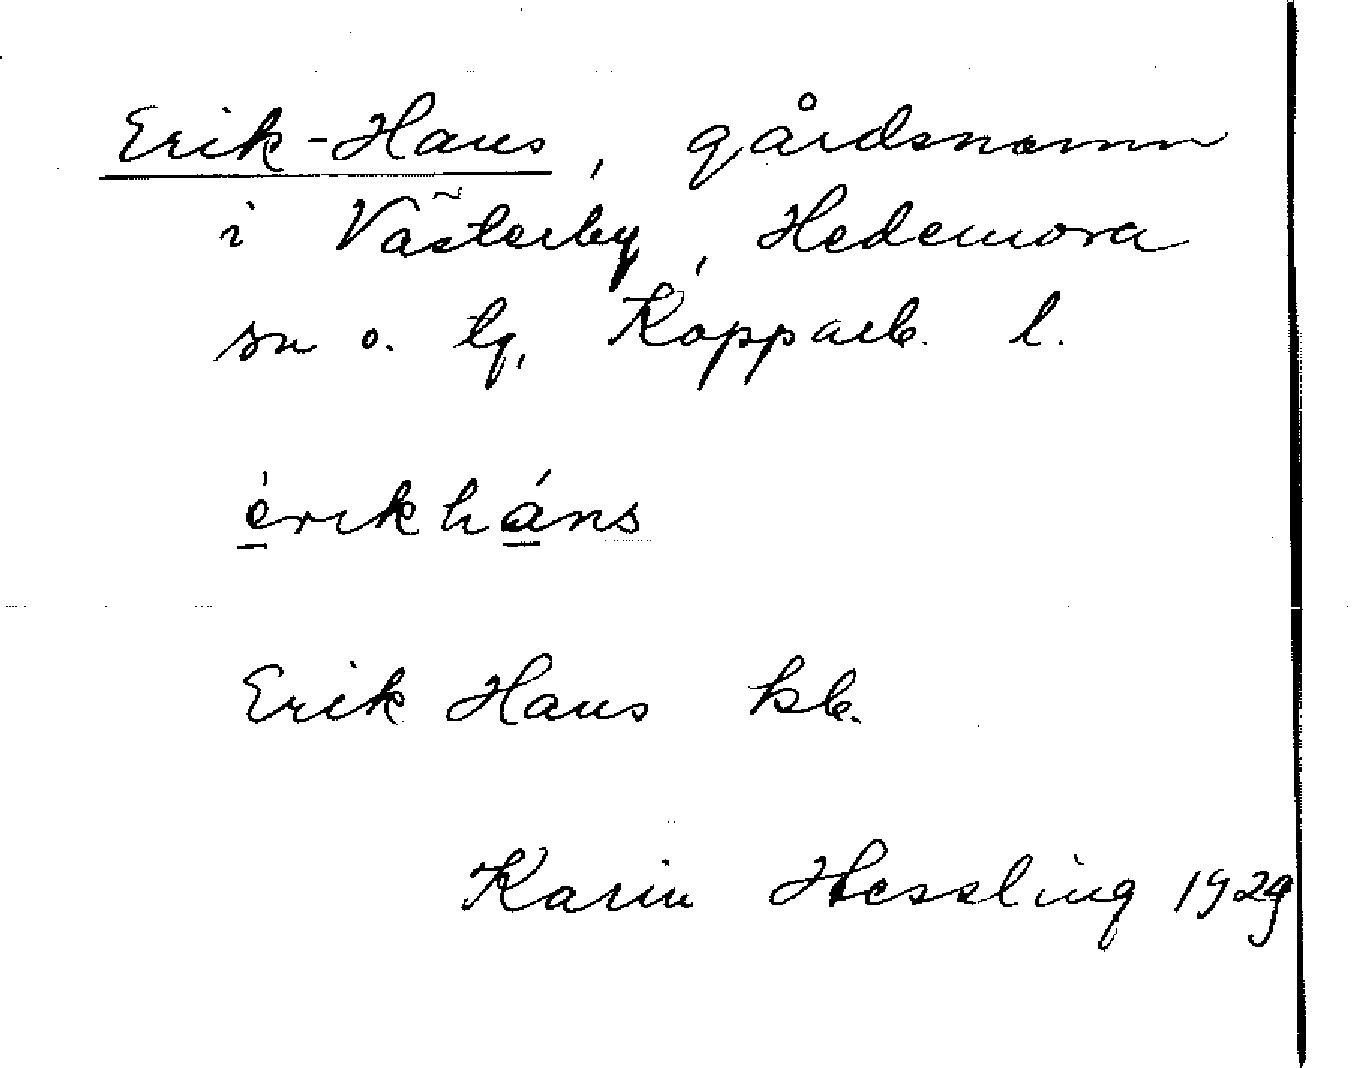 Erik-Hans, gårdsnamn
i Västerby, Hedemora
sn o. tg, Kopparb. l.
érikháns
Erik Hans kb.
Karin Hessling 1929